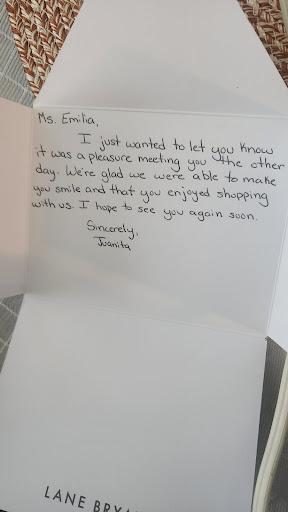 Ms. Emilia,
I just wanted to let you know
it was a pleasure meeting you the other
day. We're glad we were able to make
you smile and that you enjoyed shopping
with us. I hope to see you again soon.
Sincerely,
Juanita
LANE